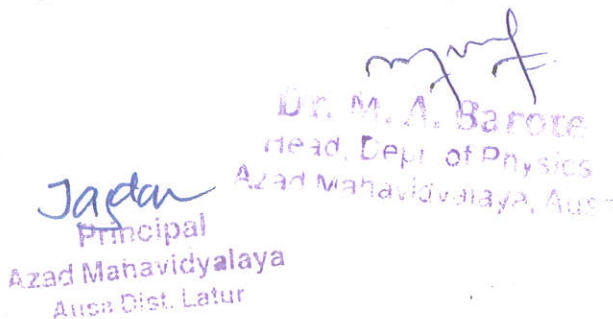 Dr. M. A. Barote
Head, Dept. of Physics
Azad Mahavidyalaya, Ausa
Principal
Azad Mahavidyalaya
Ausa Dist. Latur